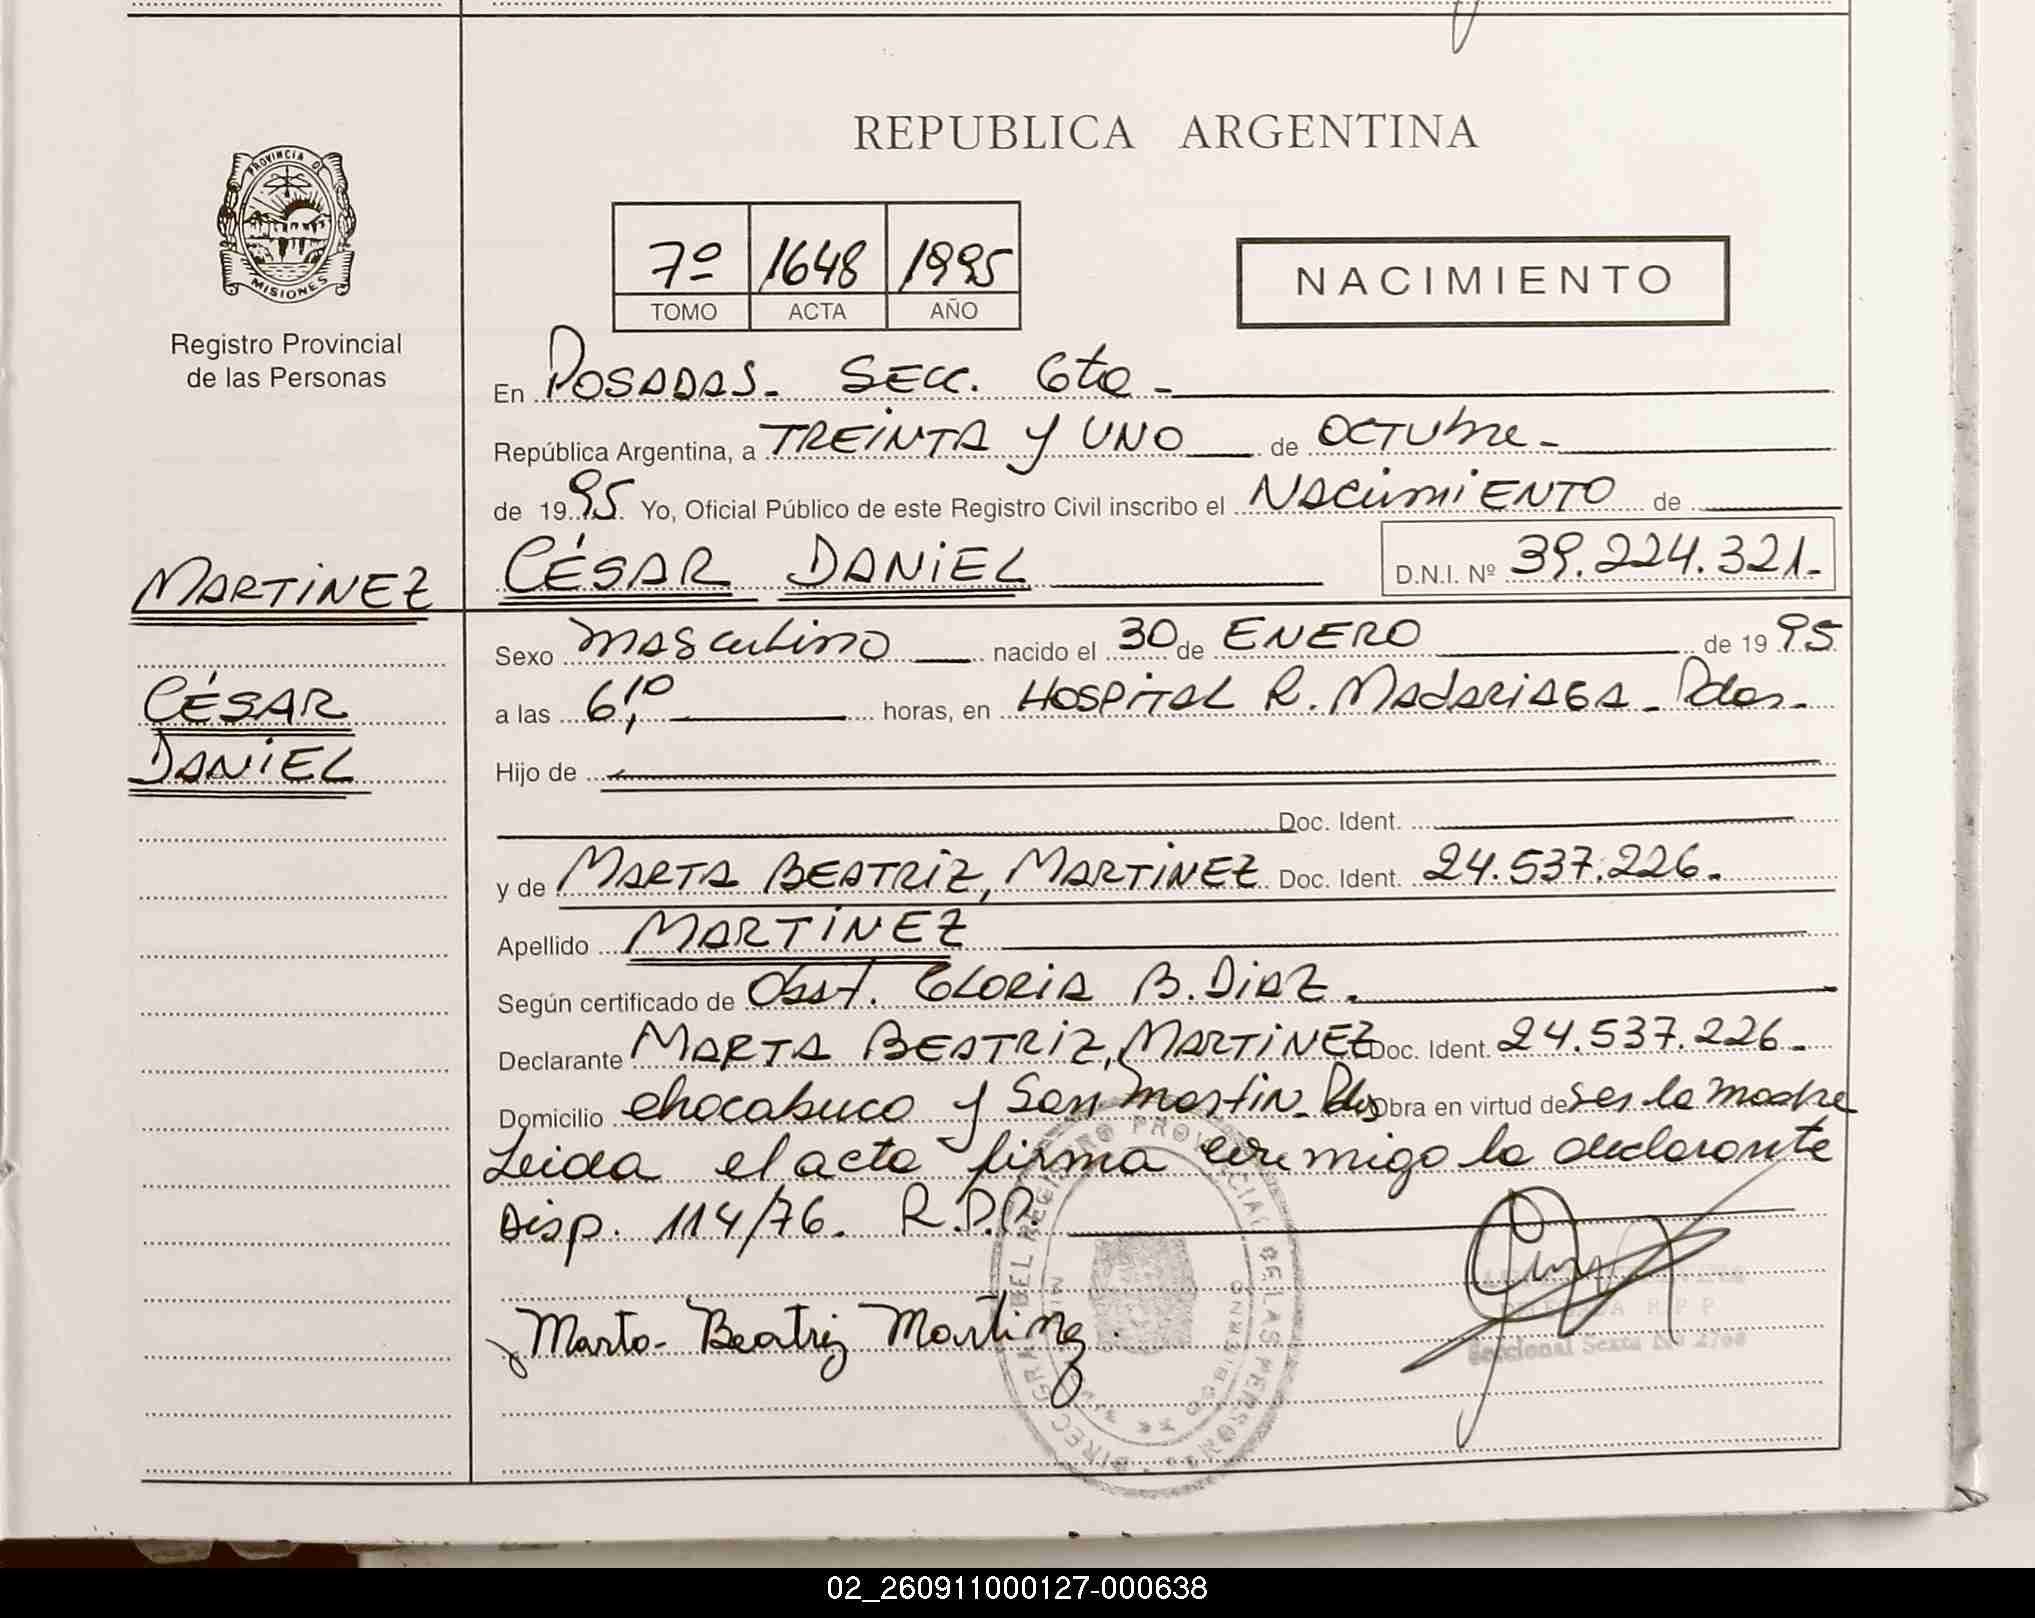 REPUBLICA ARGENTINA
PROVINCIA DE
MISIONES
Registro Provincial
de las Personas
7º 1648 1995
TOMO ACTA AÑO
NACIMIENTO
En POSADAS. SECC. 6ta -
República Argentina, a TREINTA Y UNO de OCTUbre -
de 1995. Yo, Oficial Público de este Registro Civil inscribo el NACIMIENTO de
MARTINEZ
CÉSAR DANIEL D.N.I. Nº 39.224.321.-
Sexo masculino nacido el 30 de ENERO de 1995
CÉSAR
a las 6,10 horas, en HOSPITAL R. MADARIAGA - Pdas.
DANIEL
Hijo de
Doc. Ident.
y de MARTA BEATRIZ, MARTINEZ Doc. Ident. 24.537.226.
Apellido MARTINEZ
Según certificado de Obst. GLORIA B. DIAZ.
Declarante MARTA BEATRIZ, MARTINEZ Doc. Ident. 24.537.226 -
Domicilio chacabuco y San Martin - Pdas Obra en virtud de ser la madre
Leida el acta firma conmigo la declarante
Disp. 114/76. R.P.P.
Marta Beatriz Martinez.
DELEGADA R P P
Seccional Sexta
DEL REGISTRO PROVINCIAL DE LAS PERSONAS
02_260911000127-000638